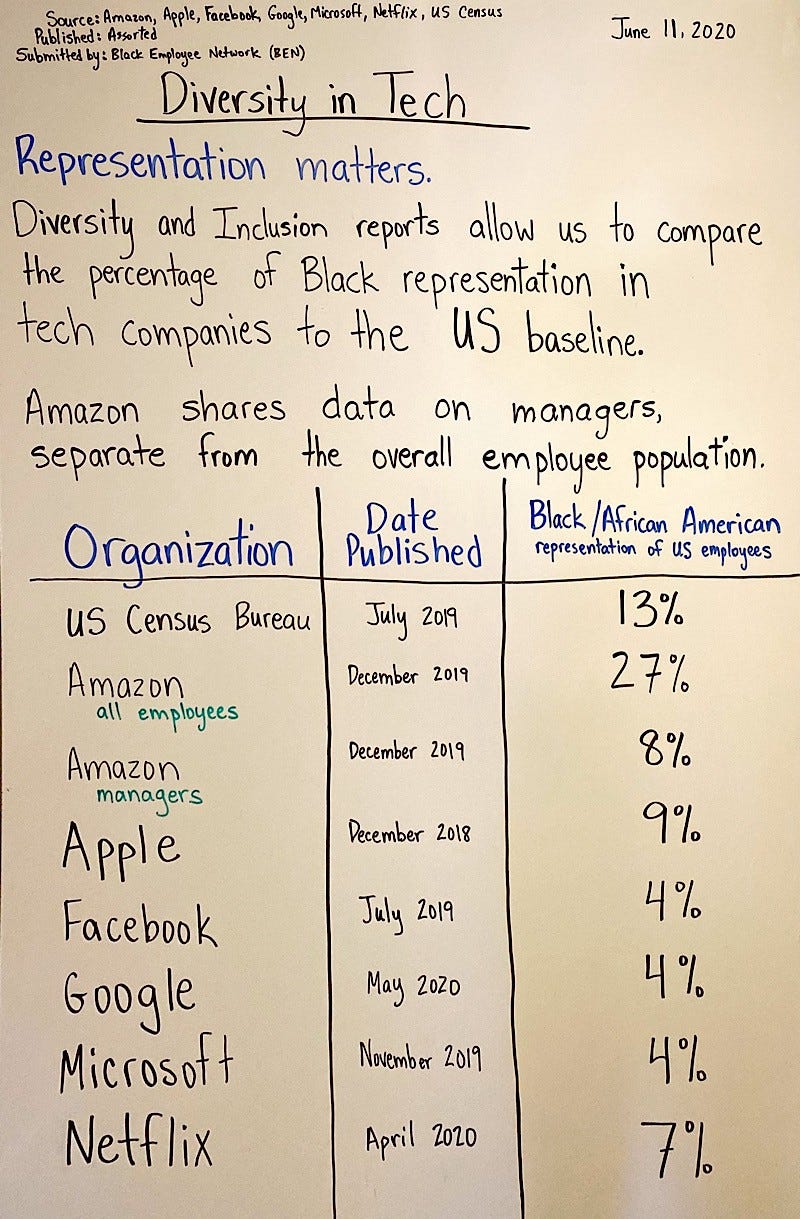 Source: Amazon, Apple, Facebook, Google, Microsoft, Netflix, US Census
Published: Assorted
Submitted by: Black Employee Network (BEN)
June 11, 2020
Diversity in Tech
Representation matters.
Diversity and Inclusion reports allow us to compare
the percentage of Black representation in
tech companies to the US baseline.
Amazon shares data on managers,
separate from the overall employee population.
Organization
Date
Published
Black/African American
representation of US employees
US Census Bureau July 2019 13%
Amazon December 2019 27%
all employees
Amazon December 2019 8%
managers
Apple December 2018 9%
Facebook July 2019 4%
Google May 2020 4%
Microsoft November 2019 4%
Netflix April 2020 7%